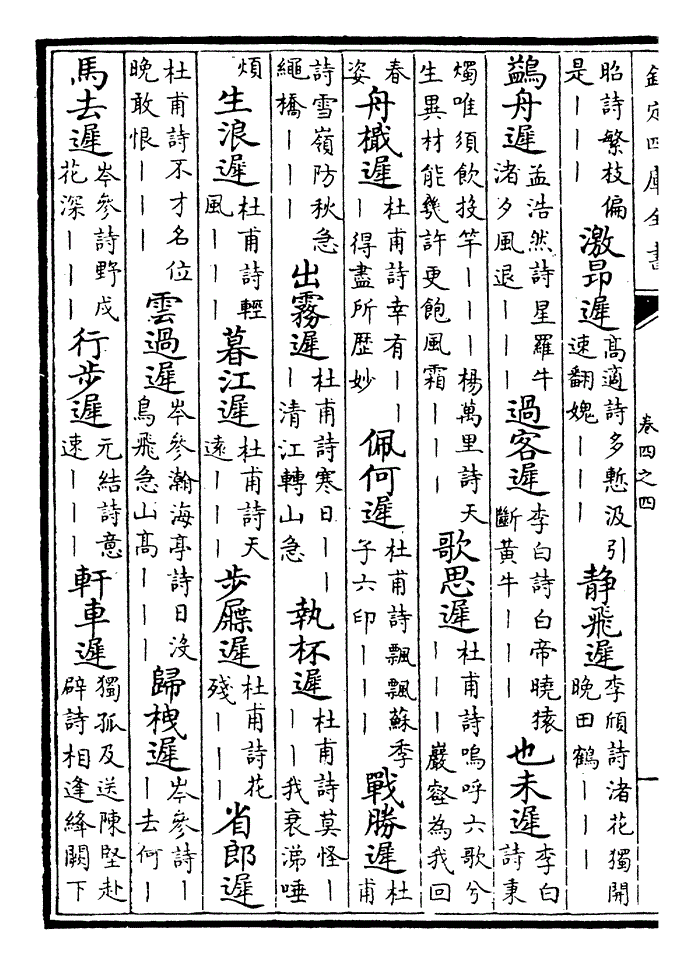 欽定四庫全書 卷四之四 一
昭詩繁枝偏是丨丨丨 激昂遲 髙適詩多慙汲引速翻媿丨丨丨 静飛遲 李頎詩渚花獨開晚田鶴丨丨丨
鷁舟遲 孟浩然詩星羅牛渚夕風退丨丨丨 過客遲 李白詩白帝曉猿斷黄牛丨丨丨 也未遲 李白詩東
燭唯須飲投竿丨丨丨楊萬里詩天生異材能幾許更飽風霜丨丨丨 歌思遲 杜甫詩嗚呼六歌兮丨丨丨巖壑為我回
春姿 舟檝遲 杜甫詩幸有丨丨丨得盡所歴妙 佩何遲 杜甫詩飄飄蘇季子六印丨丨丨 戰勝遲 杜甫
詩雪嶺防秋急繩橋丨丨丨 出霧遲 杜甫詩寒日丨丨丨清江轉山急 執杯遲 杜甫詩莫怪丨丨丨我衰涕唾
煩 生浪遲 杜甫詩輕風丨丨丨 暮江遲 杜甫詩天遠丨丨丨 步屧遲 杜甫詩花殘丨丨丨 省郎遲
杜甫詩不才名位晚敢恨丨丨丨 雲過遲 岑參瀚海亭詩日没鳥飛急山髙丨丨丨 歸栧遲 岑參詩丨丨去何丨
馬去遲 岑參詩野戍花深丨丨丨 行步遲 元結詩意速丨丨丨 軒車遲 獨孤及送陳堅赴辟詩相逢絳闕下